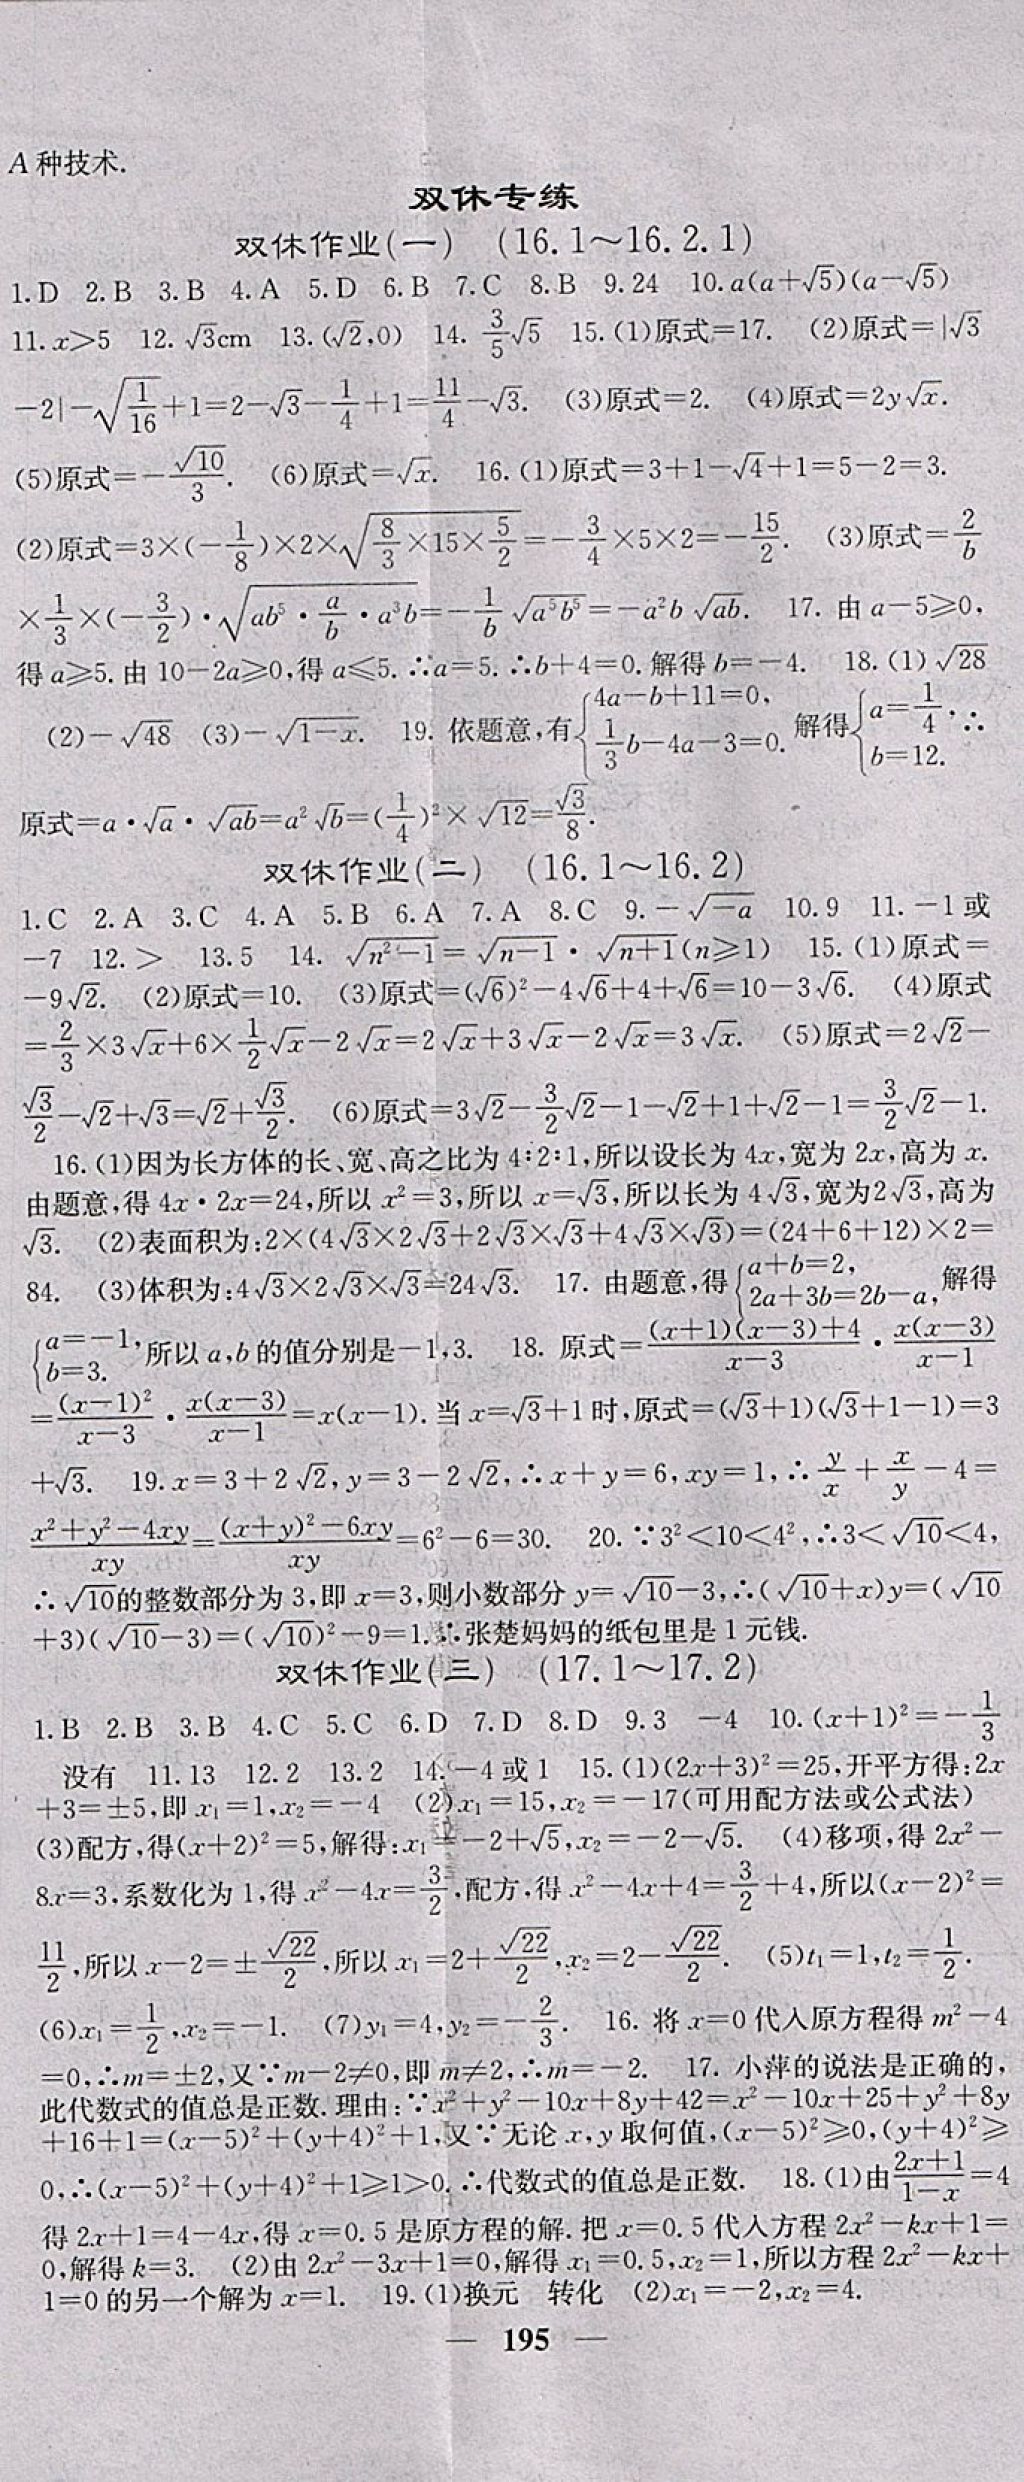 A种技术.
双休专练
双休作业(一) (16.1～16.2.1)
1.D 2.B 3.B 4.A 5.D 6.B 7.C 8.B 9.24 10.a(a+√5)(a−√5)
11.x>5 12.√3cm 13.(√2,0) 14.3/5√5 15.(1)原式=17. (2)原式=|√3
−2|−√(1/16)+1=2−√3−1/4+1=11/4−√3. (3)原式=2. (4)原式=2y√x.
(5)原式=−√10/3. (6)原式=√x. 16.(1)原式=3+1−√4+1=5−2=3.
(2)原式=3×(−1/8)×2×√(8/3×15×5/2)=−3/4×5×2=−15/2. (3)原式=2/b
×1/3×(−3/2)·√(ab⁵·a/b·a³b)=−1/b√(a⁵b⁵)=−a²b√ab. 17. 由a−5≥0,
得a≥5.由10−2a≥0,得a≤5.∴a=5.∴b+4=0.解得b=−4. 18.(1)√28
(2)−√48 (3)−√(1−x). 19. 依题意,有{4a−b+11=0, 1/3b−4a−3=0. 解得{a=1/4, b=12. ∴
原式=a·√a·√ab=a²√b=(1/4)²×√12=√3/8.
双休作业(二) (16.1～16.2)
1.C 2.A 3.C 4.A 5.B 6.A 7.A 8.C 9.−√(−a) 10.9 11.−1或
−7 12.> 13.5 14. √(n²−1)=√(n−1)·√(n+1)(n≥1) 15.(1)原式=
−9√2. (2)原式=10. (3)原式=(√6)²−4√6+4+√6=10−3√6. (4)原式
=2/3×3√x+6×1/2√x−2√x=2√x+3√x−2√x=3√x. (5)原式=2√2−
√3/2−√2+√3=√2+√3/2. (6)原式=3√2−3/2√2−1−√2+1+√2−1=3/2√2−1.
16.(1)因为长方体的长、宽、高之比为4∶2∶1,所以设长为4x,宽为2x,高为x.
由题意,得4x·2x=24,所以x²=3,所以x=√3,所以长为4√3,宽为2√3,高为
√3. (2)表面积为:2×(4√3×2√3+2√3×√3+4√3×√3)=(24+6+12)×2=
84. (3)体积为:4√3×2√3×√3=24√3. 17. 由题意,得{a+b=2, 2a+3b=2b−a, 解得
{a=−1, b=3. 所以a,b的值分别是−1,3. 18. 原式=((x+1)(x−3)+4)/(x−3)·x(x−3)/(x−1)
=(x−1)²/(x−3)·x(x−3)/(x−1)=x(x−1).当x=√3+1时,原式=(√3+1)(√3+1−1)=3
+√3. 19.x=3+2√2,y=3−2√2,∴x+y=6,xy=1,∴y/x+x/y−4=
(x²+y²−4xy)/xy=((x+y)²−6xy)/xy=6²−6=30. 20.∵3²<10<4²,∴3<√10<4,
∴√10的整数部分为3,即x=3,则小数部分y=√10−3,∴(√10+x)y=(√10
+3)(√10−3)=(√10)²−9=1.∴张楚妈妈的纸包里是1元钱.
双休作业(三) (17.1～17.2)
1.B 2.B 3.B 4.C 5.C 6.D 7.D 8.D 9.3 −4 10.(x+1)²=−1/3
没有 11.13 12.2 13.2 14.−4或1 15.(1)(2x+3)²=25,开平方得:2x
+3=±5,即x₁=1,x₂=−4 (2)x₁=15,x₂=−17(可用配方法或公式法)
(3)配方,得(x+2)²=5,解得:x₁=−2+√5,x₂=−2−√5. (4)移项,得2x²−
8x=3,系数化为1,得x²−4x=3/2,配方,得x²−4x+4=3/2+4,所以(x−2)²=
11/2,所以x−2=±√22/2,所以x₁=2+√22/2,x₂=2−√22/2. (5)t₁=1,t₂=1/2.
(6)x₁=1/2,x₂=−1. (7)y₁=4,y₂=−2/3. 16. 将x=0代入原方程得m²−4
=0,∴m=±2,又∵m−2≠0,即m≠2,∴m=−2. 17. 小萍的说法是正确的,
此代数式的值总是正数.理由:∵x²+y²−10x+8y+42=x²−10x+25+y²+8y
+16+1=(x−5)²+(y+4)²+1,又∵无论x,y取何值,(x−5)²≥0,(y+4)²≥
0,∴(x−5)²+(y+4)²+1≥1>0.∴代数式的值总是正数. 18.(1)由(2x+1)/(1−x)=4
得2x+1=4−4x,得x=0.5是原方程的解.把x=0.5代入方程2x²−kx+1=
0,解得k=3. (2)由2x²−3x+1=0,解得x₁=0.5,x₂=1,所以方程2x²−kx+
1=0的另一个解为x=1. 19.(1)换元 转化 (2)x₁=−2,x₂=4.
— 195 —